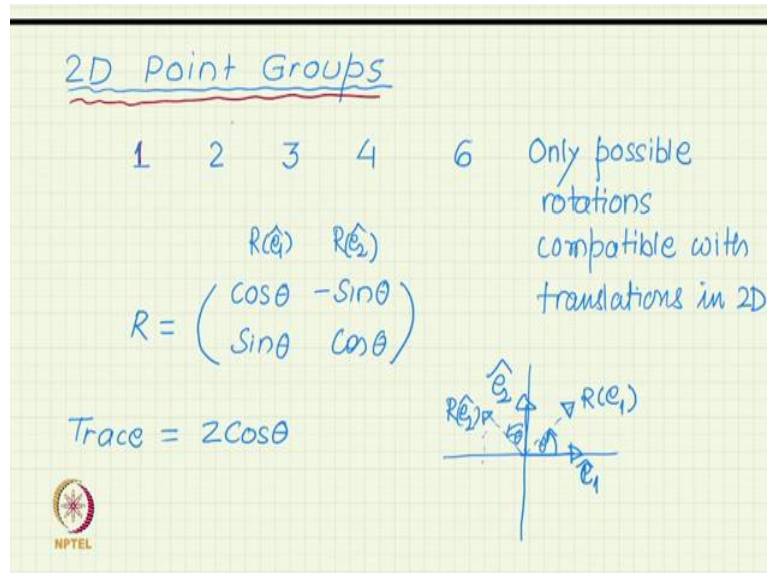 2D Point Groups
1 2 3 4 6 Only possible
rotations
compatible with
translations in 2D
R(ê₁) R(ê₂)
R = ( cosθ -sinθ
sinθ cosθ )
Trace = 2cosθ
ê₂
R(ê₂) R(e₁)
θ θ
ê₁
NPTEL